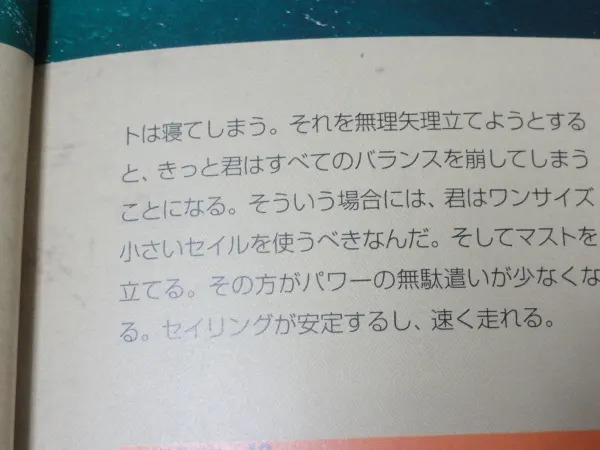 トは寝てしまう。それを無理矢理立てようとする
と、きっと君はすべてのバランスを崩してしまう
ことになる。そういう場合には、君はワンサイズ
小さいセイルを使うべきなんだ。そしてマストを
立てる。その方がパワーの無駄遣いが少なくな
る。セイリングが安定するし、速く走れる。